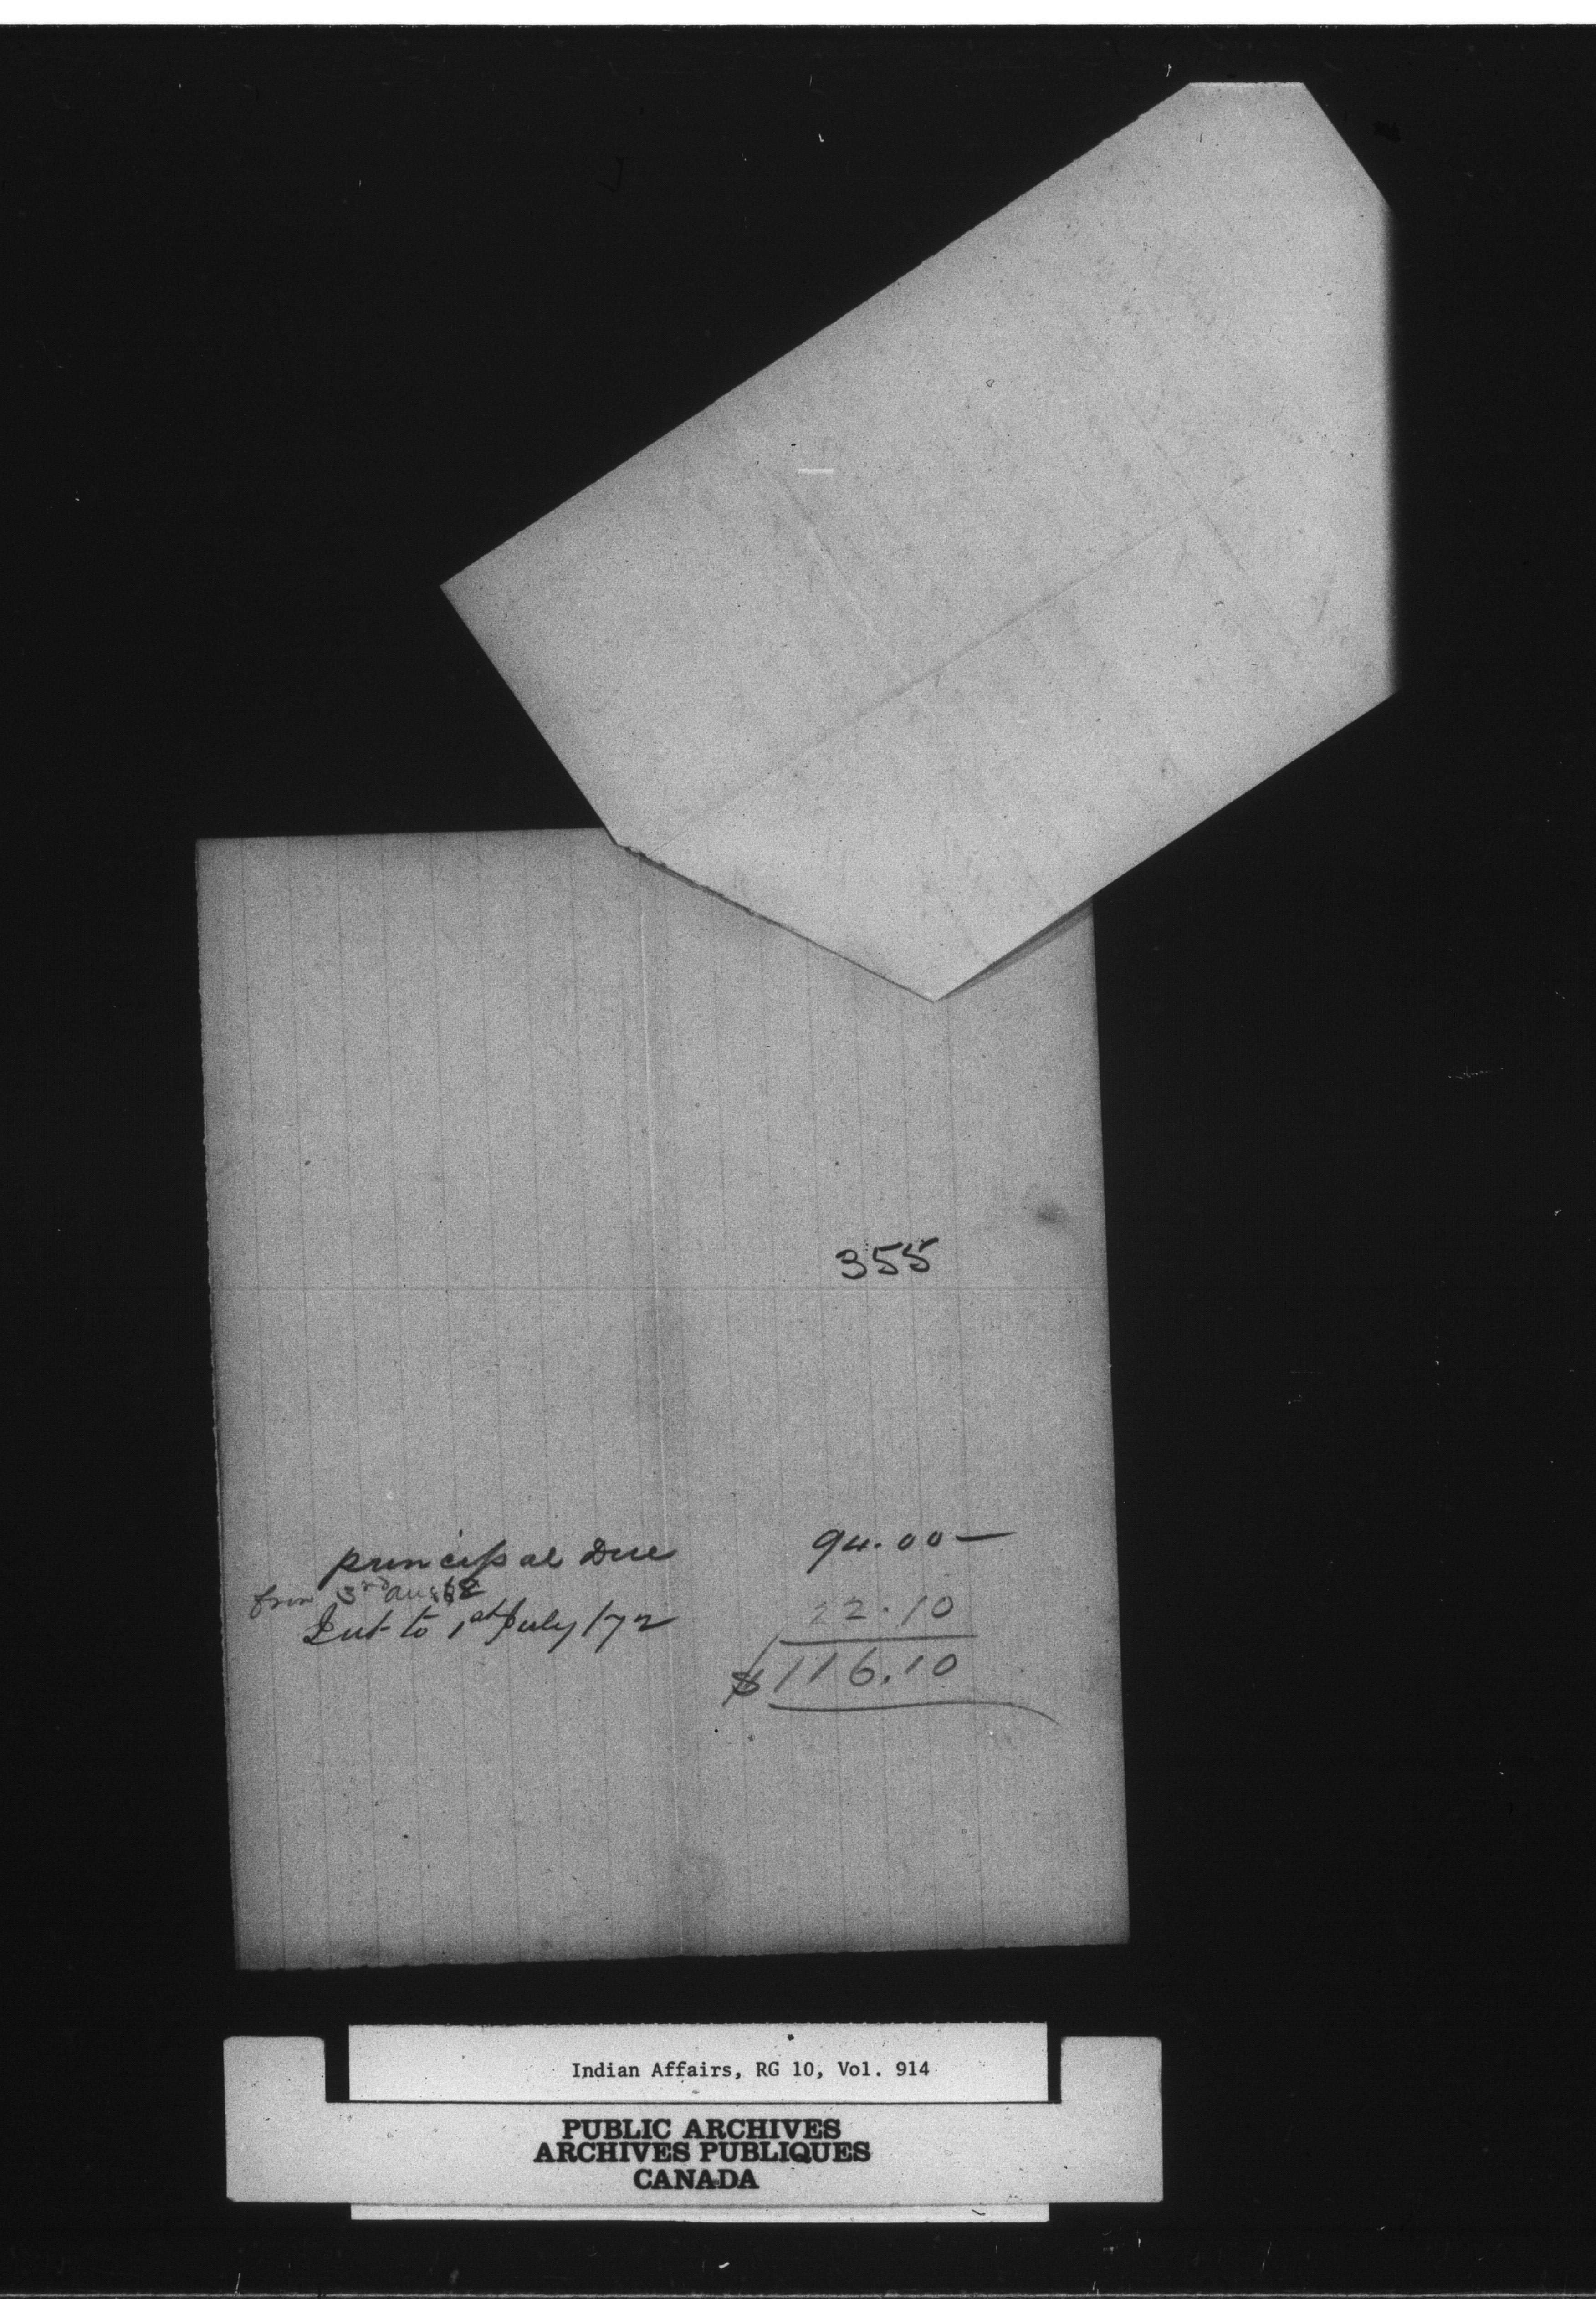 355
principal Due 94.00 —
from 3rd Aug 68
Int to 1st July /72 22.10
$116.10
Indian Affairs, RG 10, Vol. 914
PUBLIC ARCHIVES
ARCHIVES PUBLIQUES
CANADA